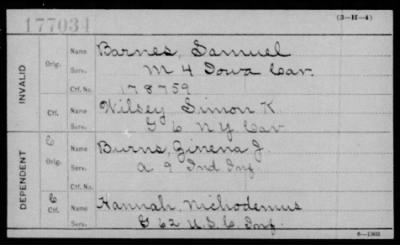 177034
(3-H-4)
INVALID
Orig. Name Barnes, Samuel
Serv. M 4 Iowa Cav.
Ctf. No. 178759
Ctf. Name Wilsey Simon K
Serv. G 6 N Y Cav
DEPENDENT
C
Orig. Name Burns, Ginena J.
Serv. A 9 Ind Inf
Ctf. No.
C
Ctf. Name Hannah, Nichodemus
Serv. G 62 U.S.C. Inf.